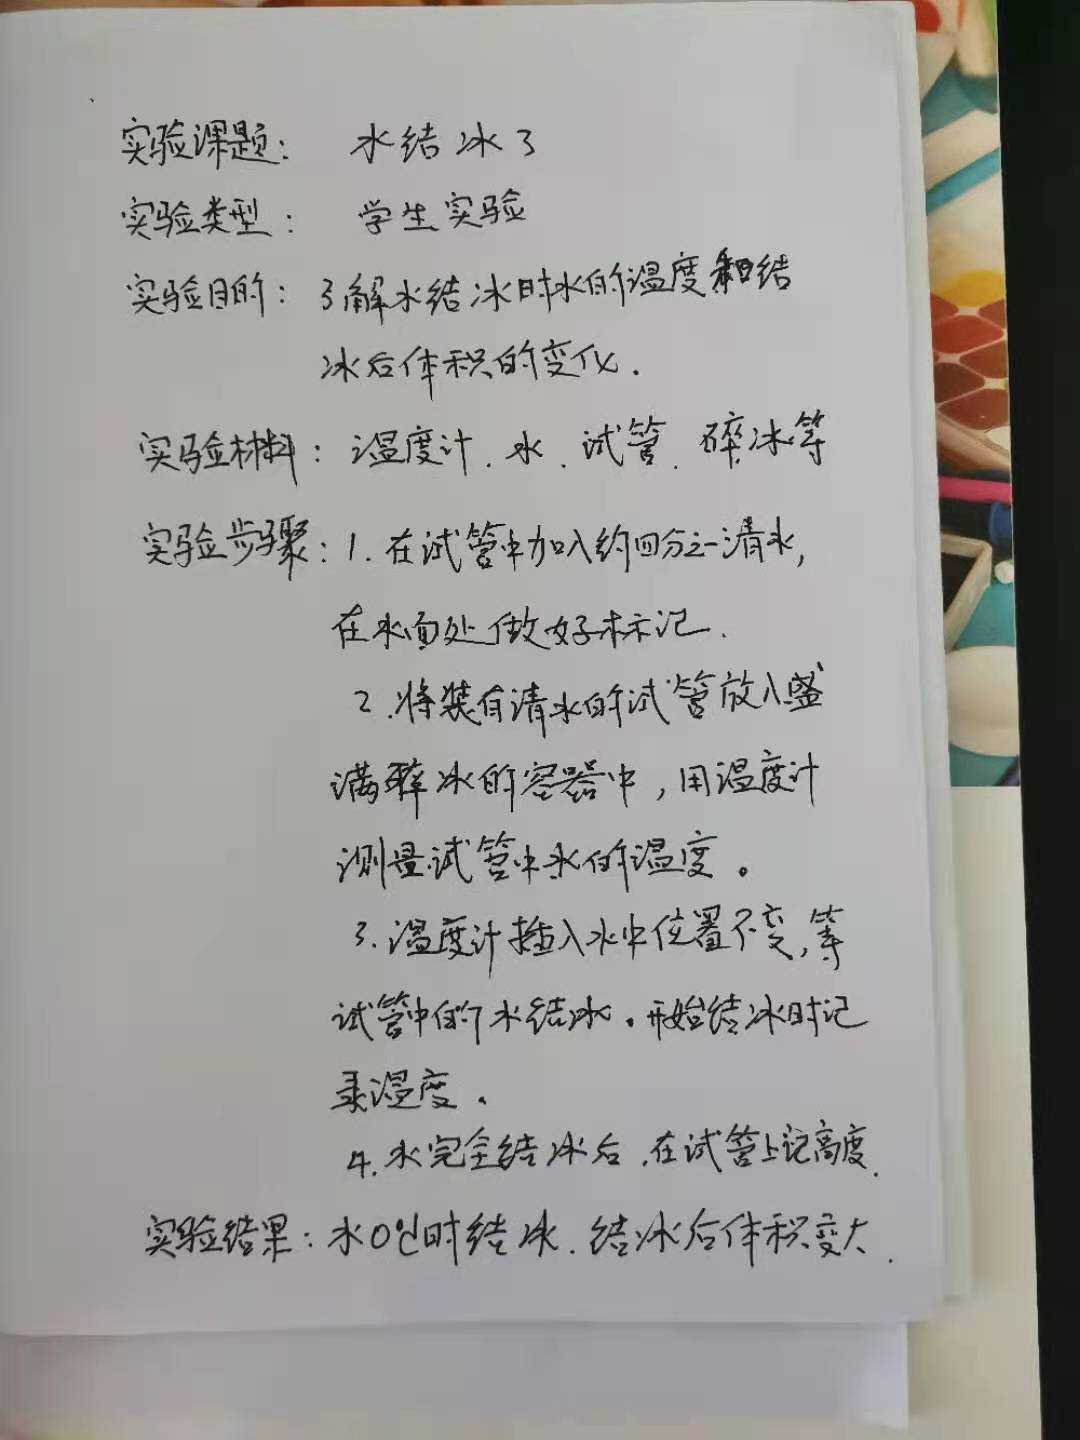 实验课题： 水结冰了
实验类型： 学生实验
实验目的：了解水结冰时水的温度和结
冰后体积的变化.
实验材料：温度计、水、试管、碎冰等
实验步骤：1.在试管中加入约四分之一清水,
在水面处做好标记.
2.将装有清水的试管放入盛
满碎冰的容器中,用温度计
测量试管中水的温度。
3.温度计插入水中位置不变,等
试管中的水结冰。开始结冰时记
录温度。
4.水完全结冰后,在试管上记高度.
实验结果：水0℃时结冰.结冰后体积变大.